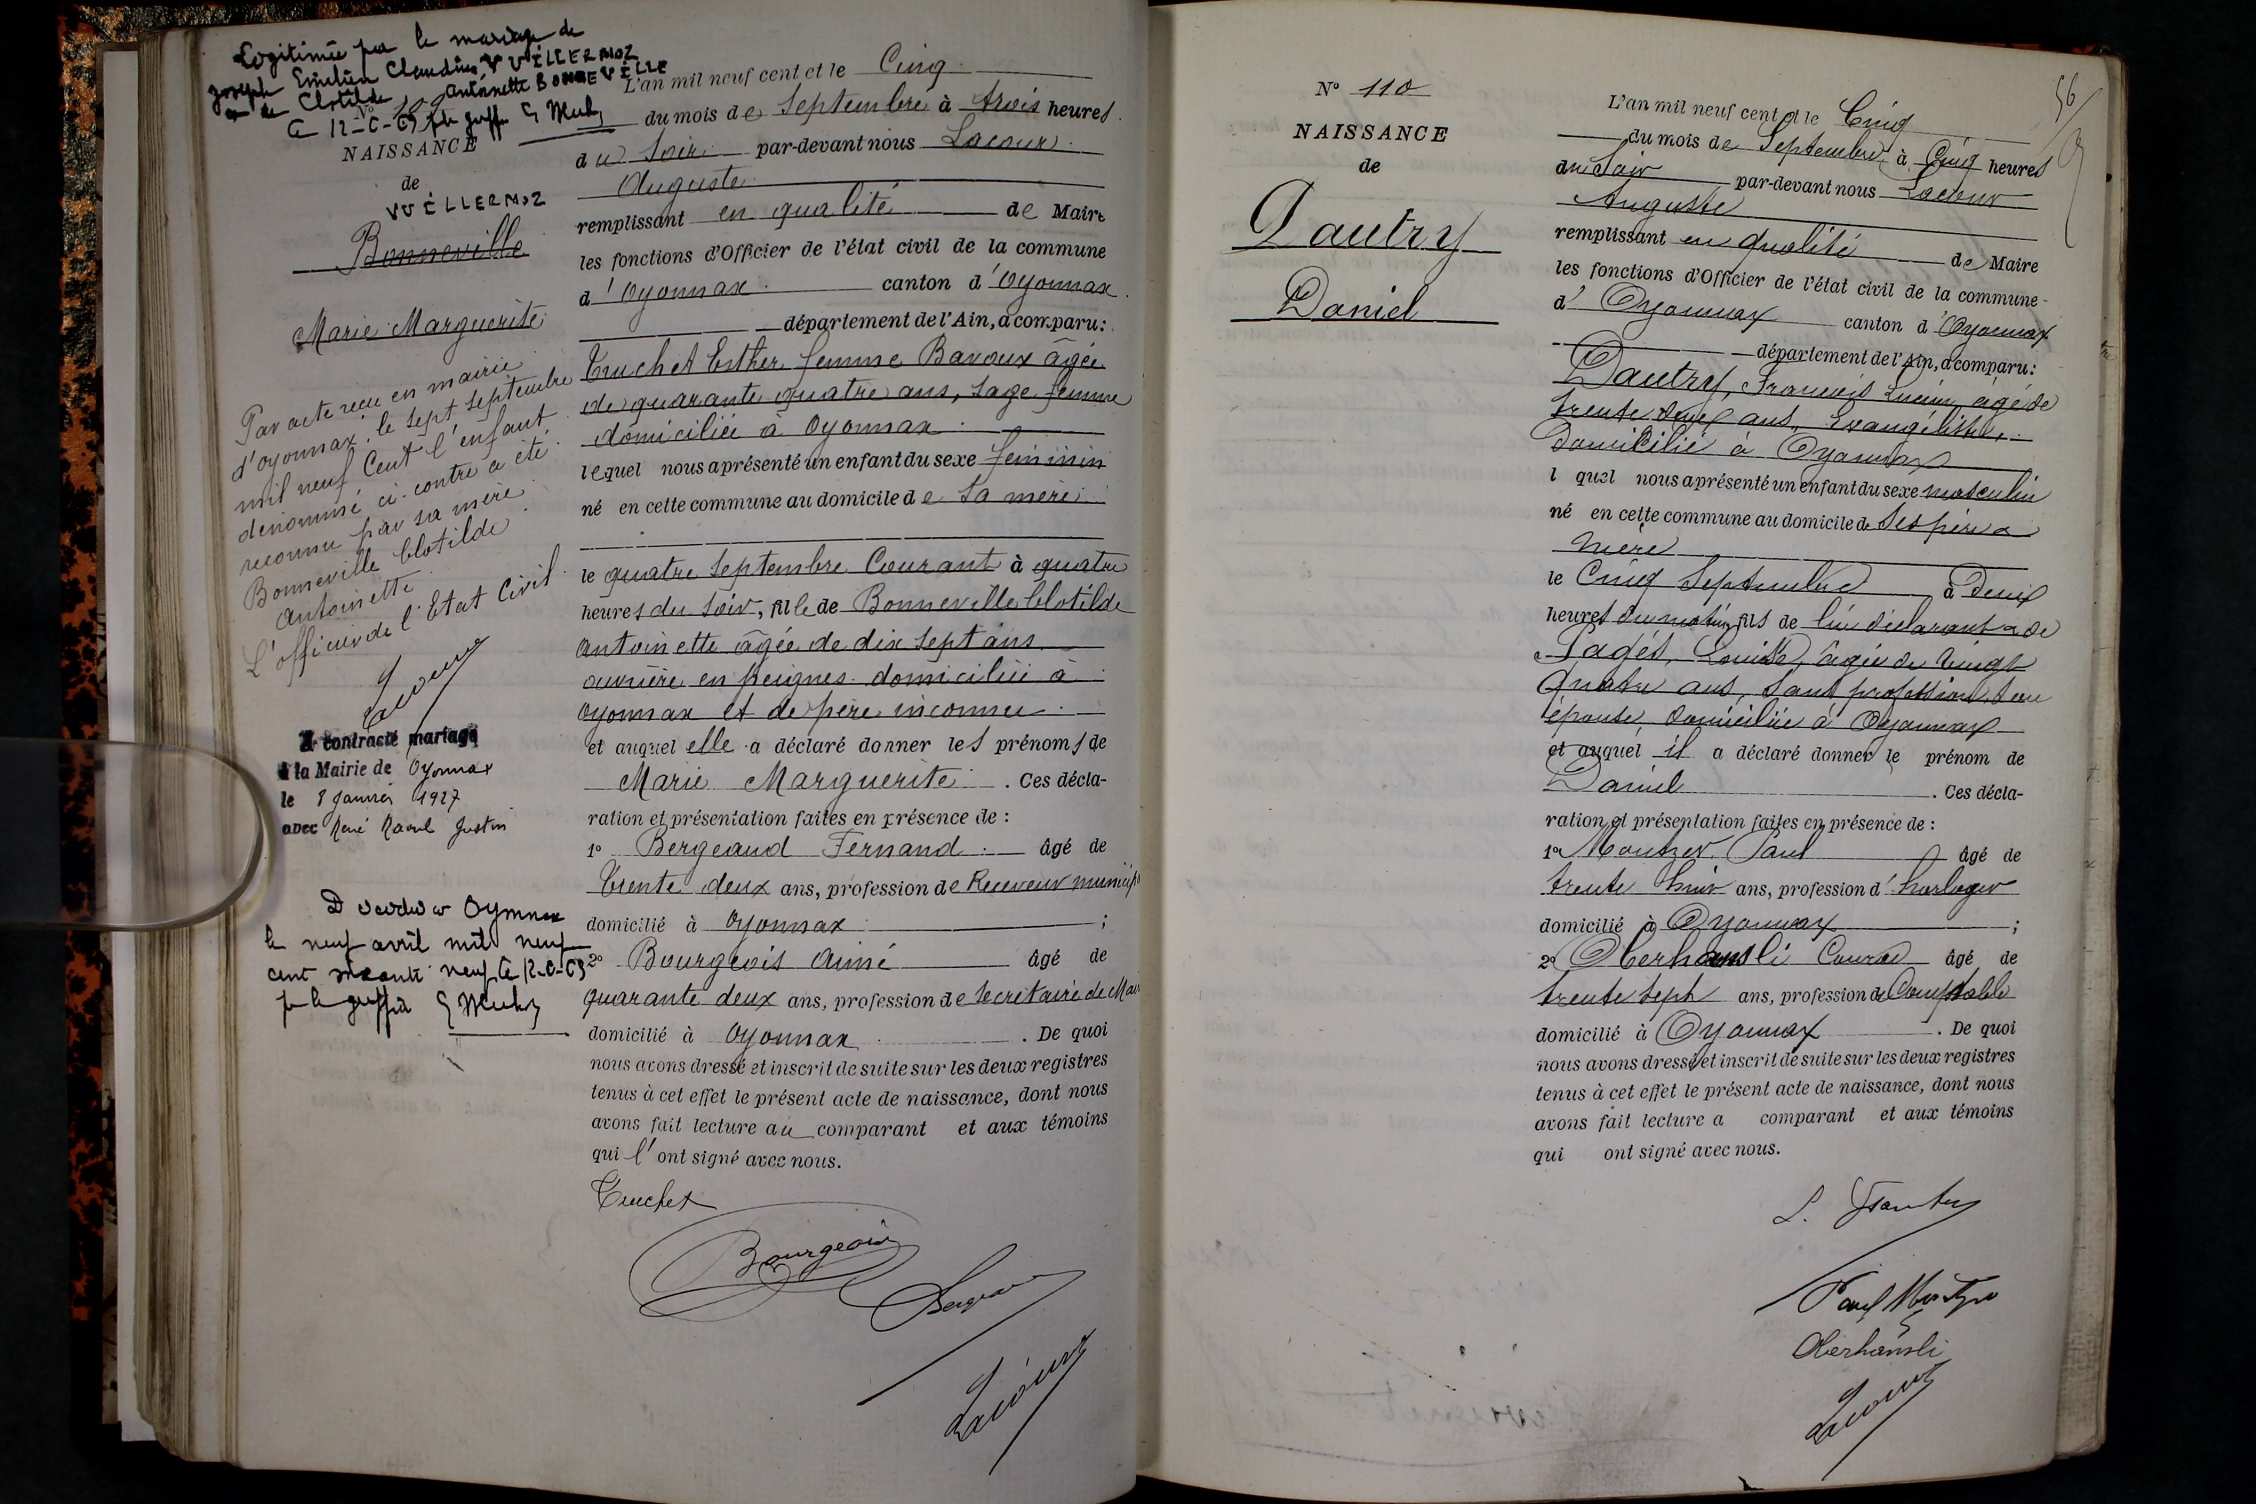 Légitimée par le mariage de
Joseph Emilien Claudius VUILLERMOZ
de Clotilde Antoinette BONNEVILLE
le greffier
N° 109
NAISSANCE
de
VUILLERMOZ
Bonneville
Marie Marguerite
Par acte reçu en mairie
d'oyonnax, le sept septembre
mil neuf cent l'enfant
dénommé ci-contre a été
reconnu par sa mère
Bonneville Clotilde
Antoinette.
L'officier de l'Etat Civil.
Lacour
A contracté mariage
à la Mairie de Oyonnax
le 8 Janvier 1927
avec René Raoul Justin
Décédée à Oyonnax
le neuf avril mil neuf
cent soixante neuf
L'an mil neuf cent et le Cinq
du mois de Septembre à trois heures
du soir par-devant nous Lacour
Auguste
remplissant en qualité de Maire
les fonctions d'Officier de l'état civil de la commune
d'Oyonnax canton d'Oyonnax
département de l'Ain, a comparu:
Truchet Esther femme Bavoux âgée
de quarante quatre ans, sage femme
domiciliée à Oyonnax
lequel nous a présenté un enfant du sexe féminin
né en cette commune au domicile de sa mère
le quatre Septembre Courant à quatre
heures du soir, fille de Bonneville Clotilde
Antoinette âgée de dix sept ans
ouvrière en peignes domiciliée à
Oyonnax et de père inconnu
et auquel elle a déclaré donner les prénoms de
Marie Marguerite. Ces décla-
ration et présentation faites en présence de :
1° Bergeaud Fernand âgé de
trente deux ans, profession de Receveur municip
domicilié à Oyonnax ;
2° Bourgeois Aimé âgé de
quarante deux ans, profession de Secrétaire de Mai
domicilié à Oyonnax. De quoi
nous avons dressé et inscrit de suite sur les deux registres
tenus à cet effet le présent acte de naissance, dont nous
avons fait lecture au comparant et aux témoins
qui l'ont signé avec nous.
Truchet
Bourgeois
Bergeaud
Lacour
56
N° 110
NAISSANCE
de
Dautry
Daniel
L'an mil neuf cent et le Cinq
du mois de Septembre à Cinq heures
du Soir par-devant nous Lacour
Auguste
remplissant en qualité de Maire
les fonctions d'Officier de l'état civil de la commune
d'Oyonnax canton d'Oyonnax
département de l'Ain, a comparu:
Dautry, François Lucien, âgé de
trente deux ans, Evangéliste,
domicilié à Oyonnax
l quel nous a présenté un enfant du sexe masculin
né en cette commune au domicile de ses père &
mère
le Cinq Septembre à Deux
heures du matin, fils de lui déclarant & de
Sagés, Louise, âgée de vingt
quatre ans, sans profession, son
épouse, domiciliée à Oyonnax
et auquel il a déclaré donner le prénom de
Daniel. Ces décla-
ration et présentation faites en présence de :
1° Paul âgé de
trente huit ans, profession d'horloger
domicilié à Oyonnax ;
2° Oberhansli Conrad âgé de
trente sept ans, profession de Comptable
domicilié à Oyonnax. De quoi
nous avons dressé et inscrit de suite sur les deux registres
tenus à cet effet le présent acte de naissance, dont nous
avons fait lecture a comparant et aux témoins
qui ont signé avec nous.
L. Dautry
Paul
Oberhänsli
Lacour